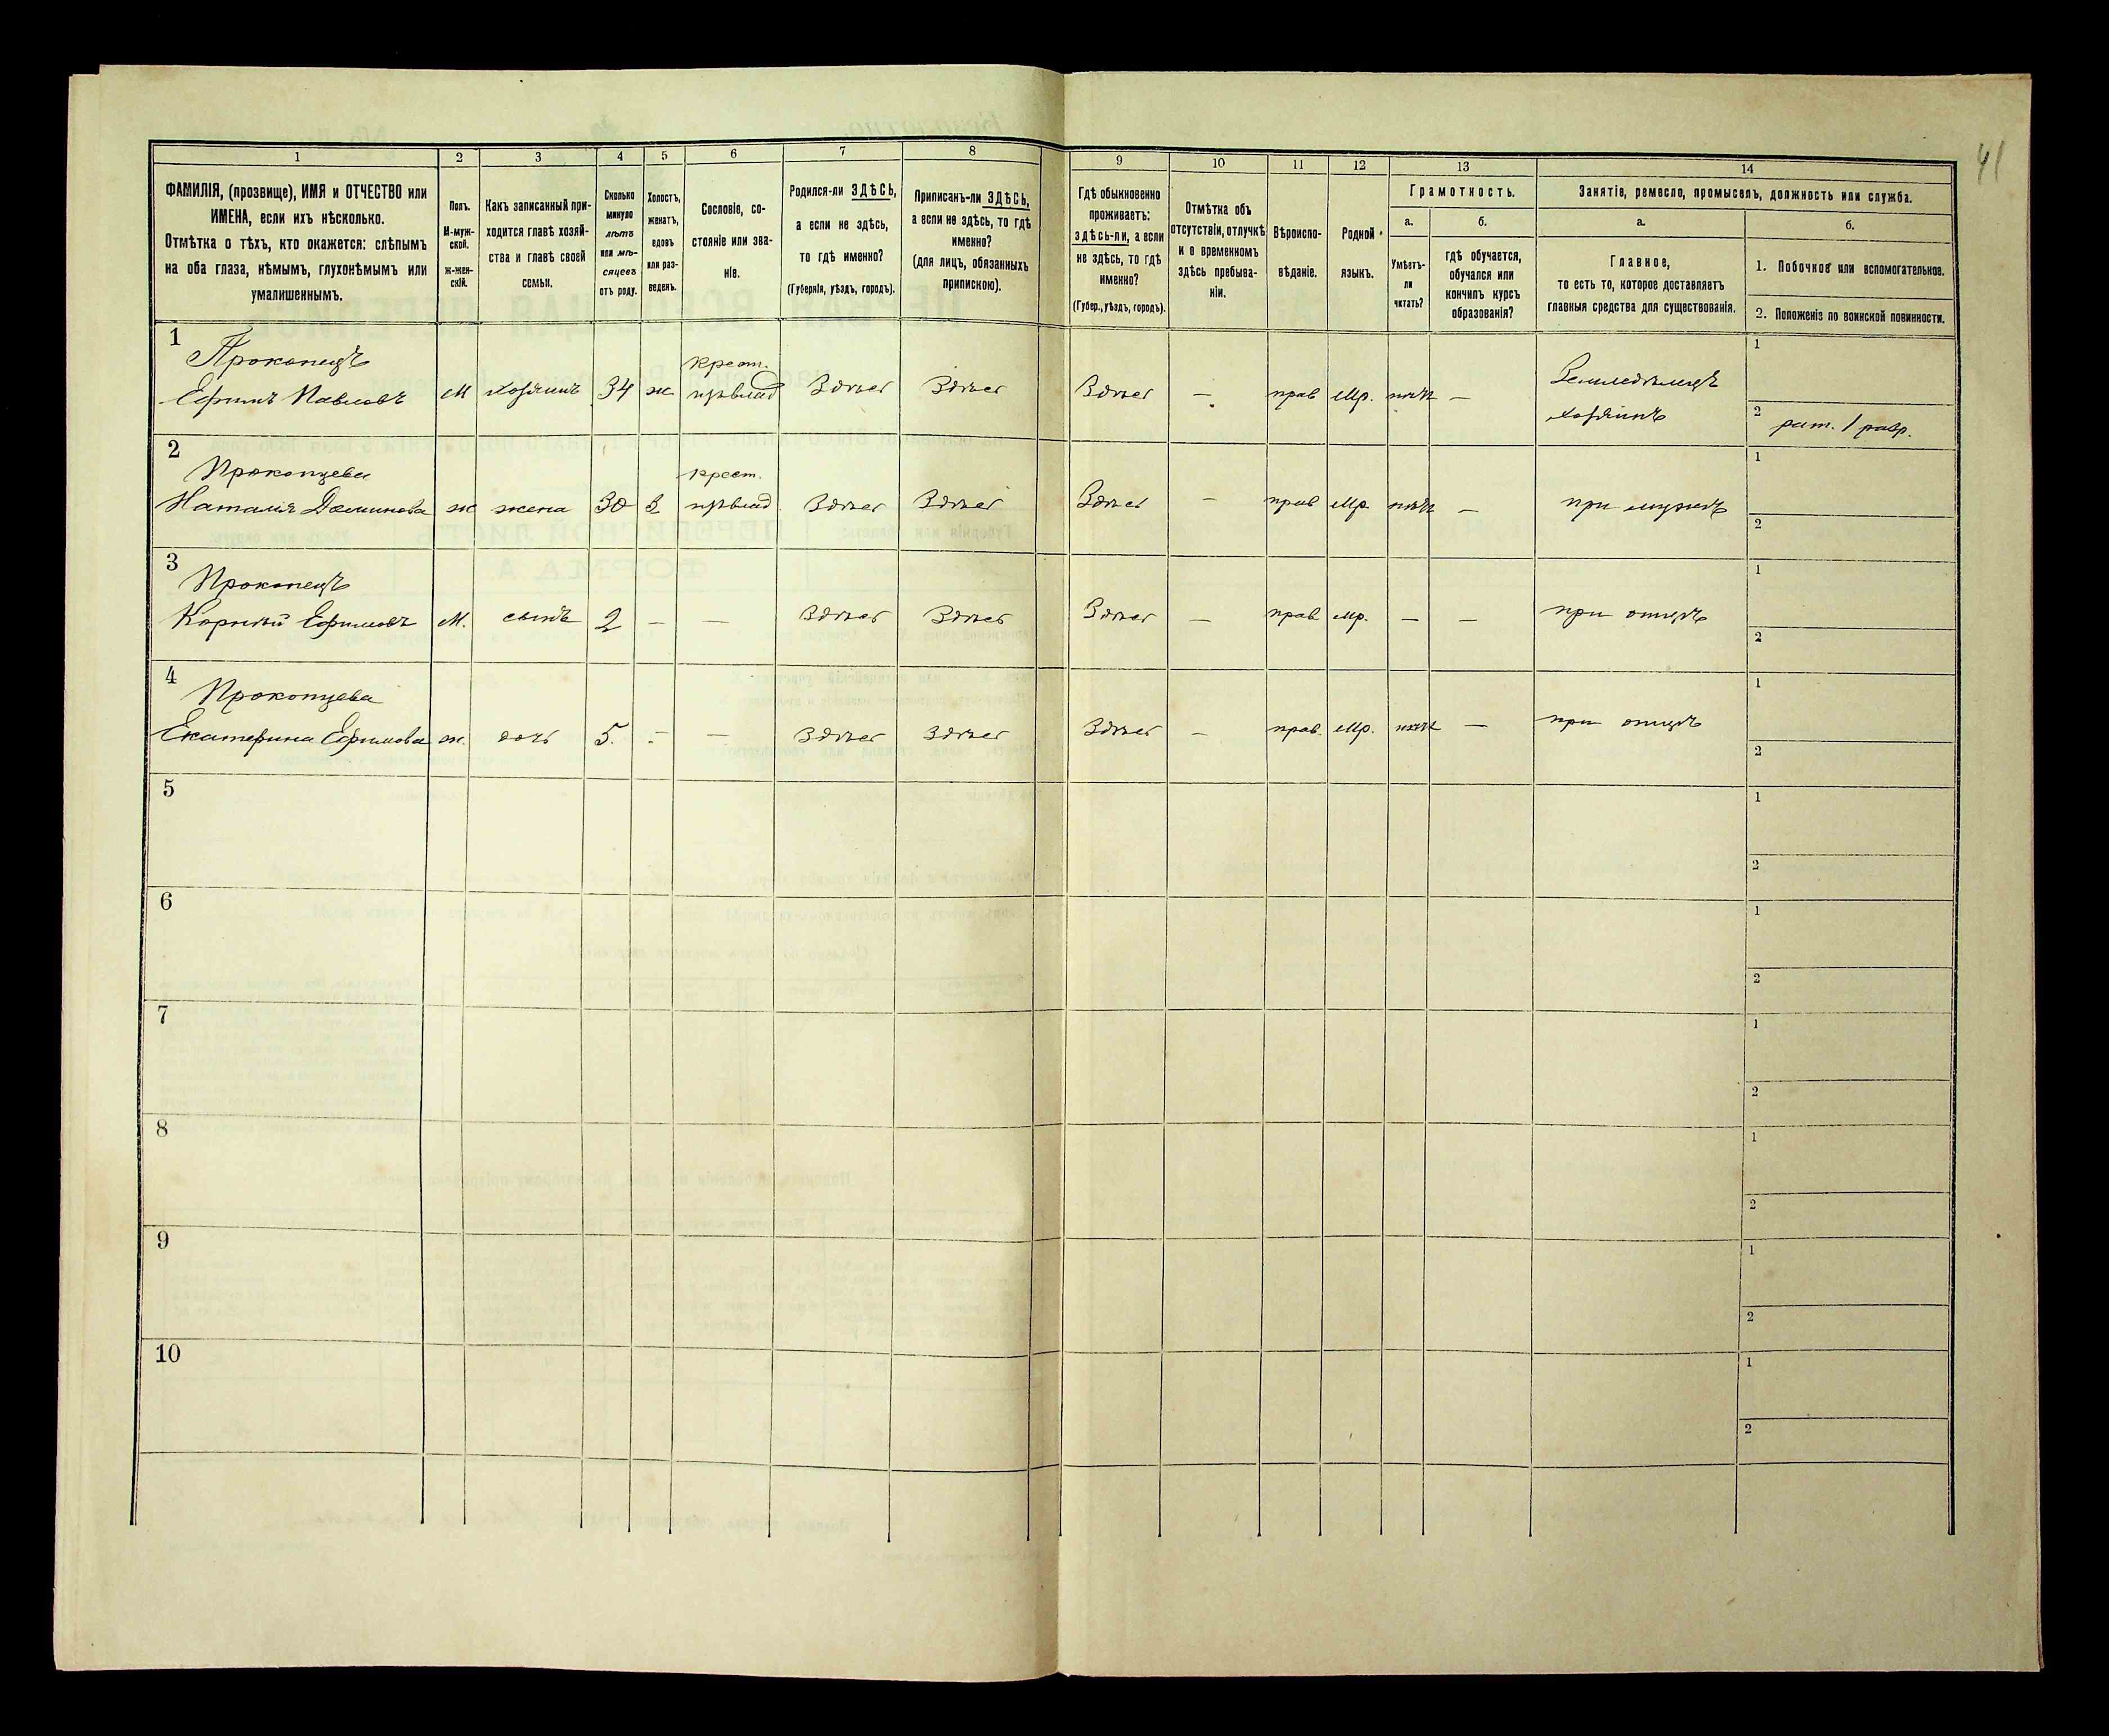 41
1
2
3
4
5
6
7
8
9
10
11
12
13
14
ФАМИЛІЯ, (прозвище), ИМЯ и ОТЧЕСТВО или
ИМЕНА, если ихъ нѣсколько.
Отмѣтка о тѣхъ, кто окажется: слѣпымъ
на оба глаза, нѣмымъ, глухонѣмымъ или
умалишеннымъ.
Полъ.
М-муж-
ской.
Ж-жен-
скій.
Какъ записанный при-
ходится главѣ хозяй-
ства и главѣ своей
семьи.
Сколько
минуло
лѣтъ
или мѣ-
сяцевъ
отъ роду.
Холостъ,
женатъ,
вдовъ
или раз-
веденъ.
Сословіе, со-
стояніе или зва-
ніе.
Родился-ли ЗДѢСЬ,
а если не здѣсь,
то гдѣ именно?
(Губернія, уѣздъ, городъ).
Приписанъ-ли ЗДѢСЬ,
а если не здѣсь, то гдѣ
именно?
(для лицъ, обязанныхъ
припискою).
Гдѣ обыкновенно
проживаетъ:
здѣсь-ли, а если
не здѣсь, то гдѣ
именно?
(Губер., уѣздъ, городъ).
Отмѣтка объ
отсутствіи, отлучкѣ
и о временномъ
здѣсь пребыва-
ніи.
Вѣроиспо-
вѣданіе.
Родной
языкъ.
Грамотность.
а.
б.
Умѣетъ-
ли
читать?
гдѣ обучается,
обучался или
кончилъ курсъ
образованія?
Занятіе, ремесло, промыселъ, должность или служба.
а.
б.
Главное,
то есть то, которое доставляетъ
главныя средства для существованія.
1. Побочное или вспомогательное.
2. Положеніе по воинской повинности.
1
Прокопецъ
Ефимъ Павловъ
М
хозяинъ
34
ж
крест.
Здѣсь
Здѣсь
Здѣсь
—
прав
мр.
нѣтъ
—
Земледѣлецъ
хозяинъ
1
2
рат. 1 разр.
2
Прокопцева
Наталія
ж
жена
30
З
крест.
Здѣсь
Здѣсь
Здѣсь
—
прав
мр.
нѣтъ
—
при мужѣ
1
2
3
Прокопецъ
Корнѣй Ефимовъ
М.
сынъ
2
—
—
Здѣсь
Здѣсь
Здѣсь
—
прав
мр.
—
—
при отцѣ
1
2
4
Прокопцева
Екатерина Ефимова
ж.
дочь
5.
—
—
Здѣсь
Здѣсь
Здѣсь
—
прав.
мр.
нѣтъ
—
при отцѣ
1
2
5
1
2
6
1
2
7
1
2
8
1
2
9
1
2
10
1
2